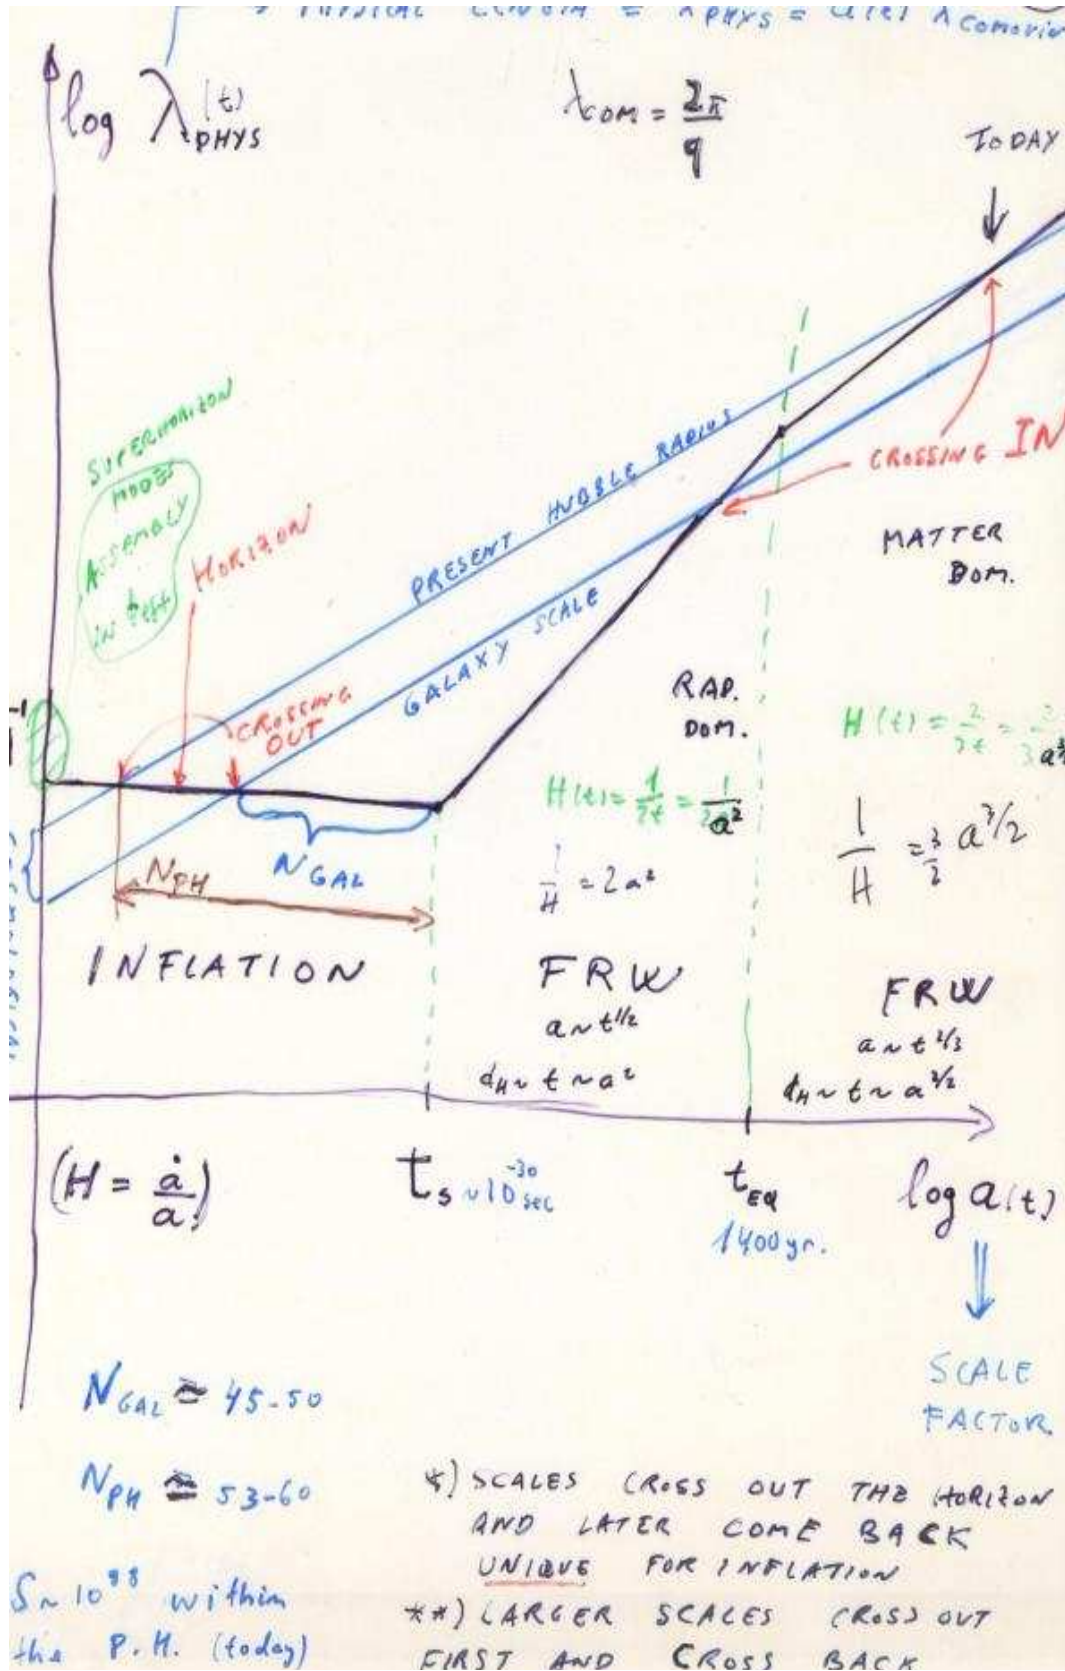 PHYSICAL LENGTH = λPHYS = a(t) λcomovin
log λPHYS(t)
λCOM = 2π/q
TODAY
SUPERHORIZON
MODES
ASSEMBLY
IN
HORIZON
PRESENT HUBBLE RADIUS
CROSSING IN
MATTER
DOM.
GALAXY SCALE
CROSSING
OUT
RAD.
DOM.
H(t) = 1/2t = 1/2a²
1/H = 2a²
H(t) = 2/3t =
1/H = 3/2 a^3/2
NPH
NGAL
INFLATION
FRW
a ~ t^1/2
dH ~ t ~ a²
FRW
a ~ t^2/3
dH ~ t ~ a^3/2
(H = ȧ/a)
ts ~10^-30 sec
tEQ
1400yr.
log a(t)
SCALE
FACTOR
NGAL ≅ 45-50
NPH ≅ 53-60
S~10^88 within
the P.H. (today)
*) SCALES CROSS OUT THE HORIZON
AND LATER COME BACK
UNIQUE FOR INFLATION
**) LARGER SCALES CROSS OUT
FIRST AND CROSS BACK